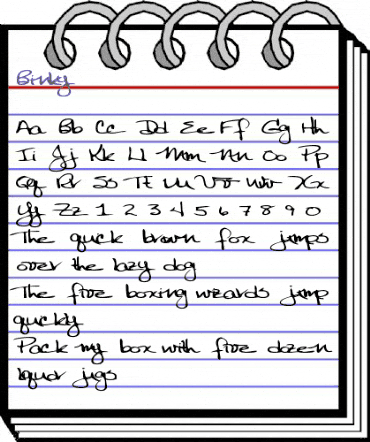 Binky
Aa Bb Cc Dd Ee Ff Gg Hh
Ii Jj Kk Ll Mm Nn Oo Pp
Qq Rr Ss Tt Uu Vv Ww Xx
Yy Zz 1 2 3 4 5 6 7 8 9 0
The quick brown fox jumps
over the lazy dog
The five boxing wizards jump
quickly
Pack my box with five dozen
liquor jugs